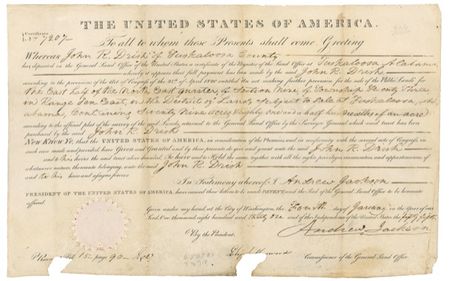 THE UNITED STATES OF AMERICA.
Certificate
No. 7207
To all to whom these Presents shall come, Greeting
Whereas John R. Drish of Tuskaloosa County
has deposited in the General Land Office of the United States, a certificate of the Register of the Land Office at Tuskaloosa Alabama
whereby it appears that full payment has been made by the said John R. Drish
according to the provisions of the Act of Congress of the 24th April 1820 entitled An act making further provision for the sale of the Public Lands for
the East half of the North East quarter, of Section Nine of Township Twenty Three
in Range Ten East, in the District of Lands Subject to Sale at Tuskaloosa, Al-
abama, Containing Seventy Nine acres Eighty one and a half hundredths of an acre
according to the official plat of the survey of the said Lands, returned to the General Land Office by the Surveyor General which said tract has been
purchased by the said John R. Drish
NOW KNOW YE, that the UNITED STATES OF AMERICA, in consideration of the Premises and in conformity with the several acts of Congress in
such case made and provided have Given and Granted and by these presents do give and grant unto the said John R. Drish
and to his heirs the said tract above described To have and to Hold the same together with all the rights privileges immunities and appurtenances of
whatsoever nature thereunto belonging unto the said John R. Drish
and to his heirs and assigns forever
In Testimony whereof I Andrew Jackson
PRESIDENT OF THE UNITED STATES OF AMERICA, have caused these Letters to be made PATENT and the Seal of the General Land Office to be hereunto
affixed.
Given under my hand at the City of Washington the Fourth day of January in the Year of our
Lord One thousand eight hundred and thirty one and of the Independence of the United States the fifty fifth
By the President
Andrew Jackson
Commissioner of the General Land Office